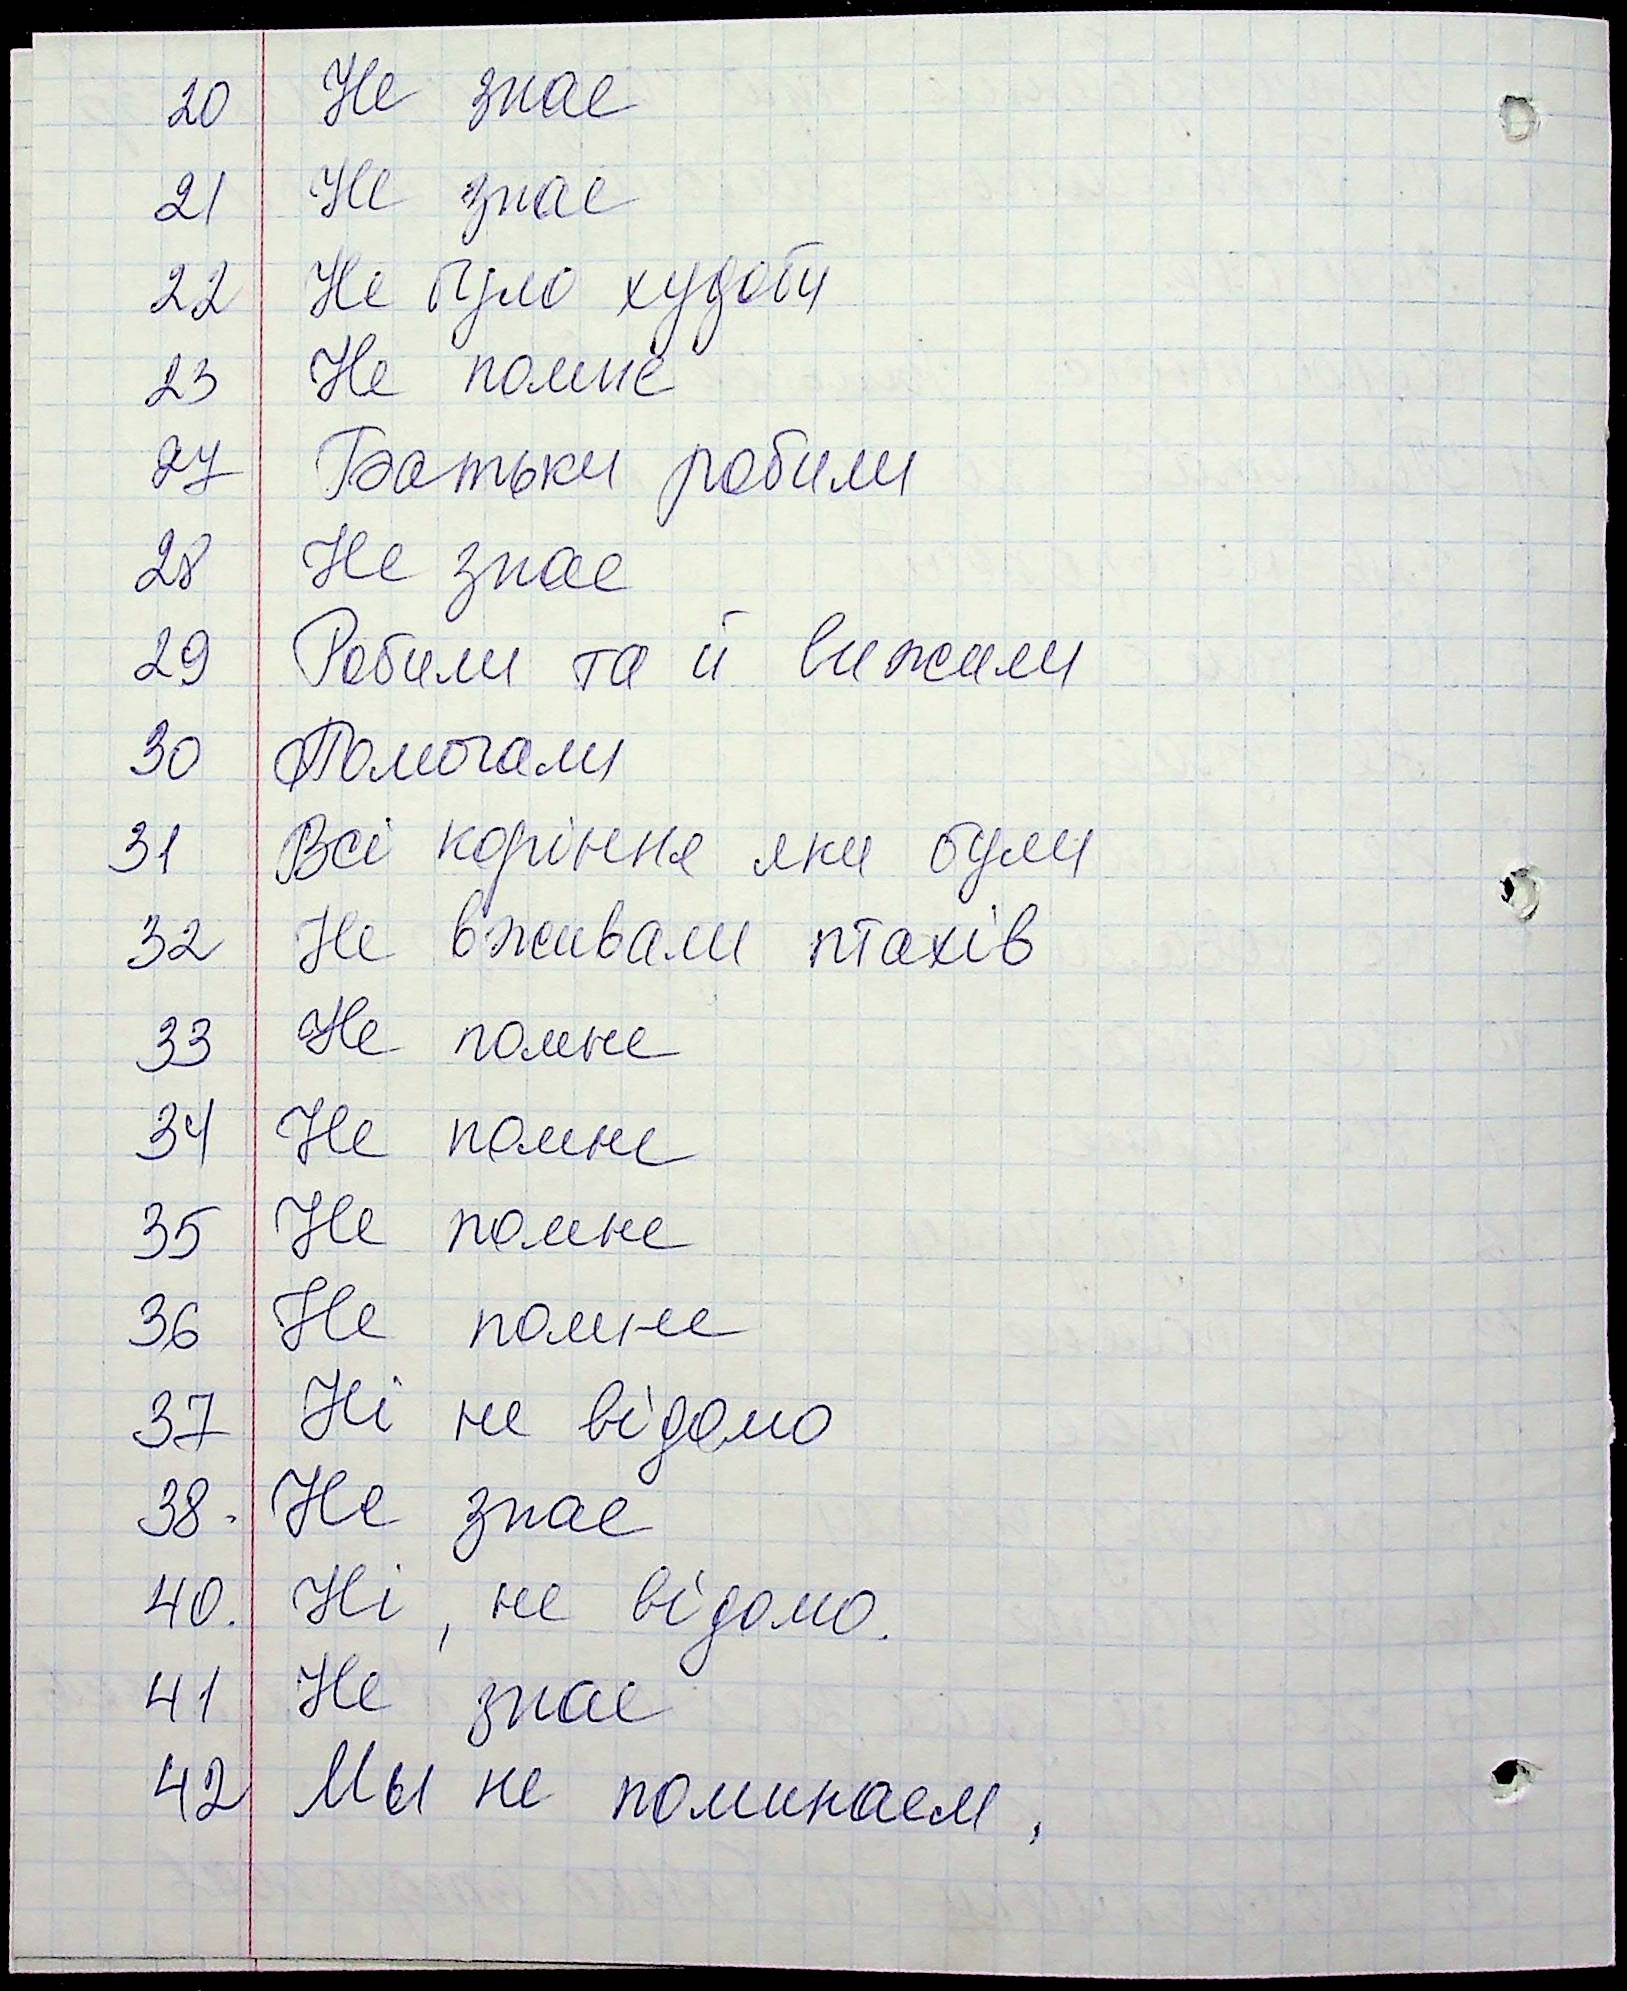 20 Не знає
21 Не знає
22 Не було худоби
23 Не помне
27 Батьки робили
28 Не знає
29 Робили та й вижили
30 Помогали
31 Всі коріння яки були
32 Не вживали птахів
33 Не помне
34 Не помне
35 Не помне
36 Не помне
37 Ні не відомо
38. Не знає
40. Ні, не відомо.
41 Не знає
42 Мы не поминаем,